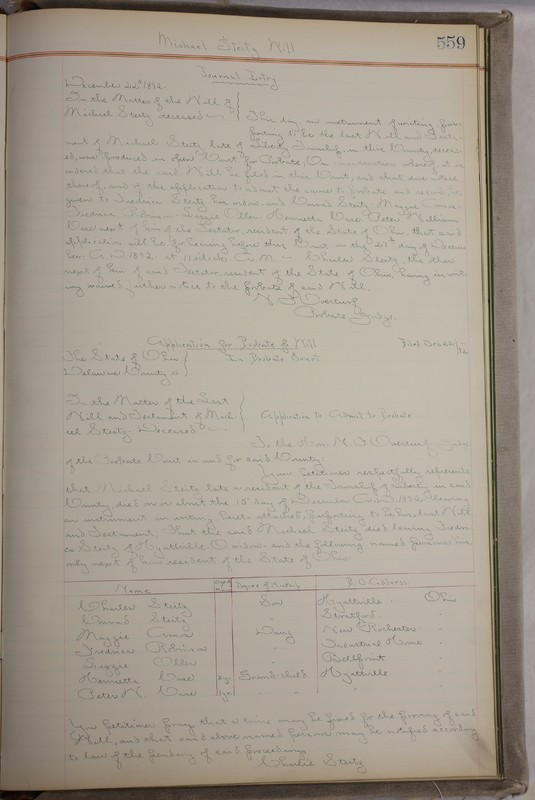 559
Michael Steitz Will
Journal Entry
December 22d 1892.
In the Matter of the Will of
Michael Steitz deceased
This day an instrument of writing purporting
to be the last Will and Testament
of Michael Steitz late of Liberty Township in this County, deceased,
was produced in open Court for Probate; On it is
ordered that the said Will be filed in this Court, and that due notice
thereof, and of the application to admit the same to Probate and record, be
given to Fredrica Steitz his widow, and Conrad Steitz Maggie
Fredrica Robinson Lizzie Oller Henrietta Peter William
next of kin of the Testator, resident of the State of Ohio, that said
application will be for hearing before this Court, on the day of
A.D. 1892. at 11 o'clock A.M. Charles Steitz, the other
next of kin of said Testator, resident of the State of Ohio, having in writing
waived further notice to the probate of said Will.
N. F. Overturf
Probate Judge.
Application for Probate of Will
The State of Ohio
Delaware County ss
In Probate Court
In the Matter of the Last
Will and Testament of Michael
Steitz Deceased
Application to Admit to Probate
To the Hon. N. F. Overturf Judge
of the Probate Court in and for said County:
Your petitioner respectfully represents
that Michael Steitz late a resident of the Township of Liberty in said
County, died on or about the 15" day of December A.D. 1892, leaving
an instrument in writing hereto attached, purporting to be his last Will
and Testament; That the said Michael Steitz died leaving Fredrica
Steitz of Hyattville, O. widow, and the following named persons his
only next of kin resident of the State of Ohio
Name Degree of Kinship P.O. Address
Charles Steitz Son Hyattville Ohio
Conrad Steitz " Stratford "
Maggie New Rochester "
Fredrica Robinson " Industrial Home "
Lizzie Oller " Bellpoint "
Henrietta Grand child Hyattville "
Peter W. " " "
Your petitioner prays that a time may be fixed for the proving of said
Will, and that said above named persons may be notified according
to law of the pendency of said proceedings
Charlie Steitz